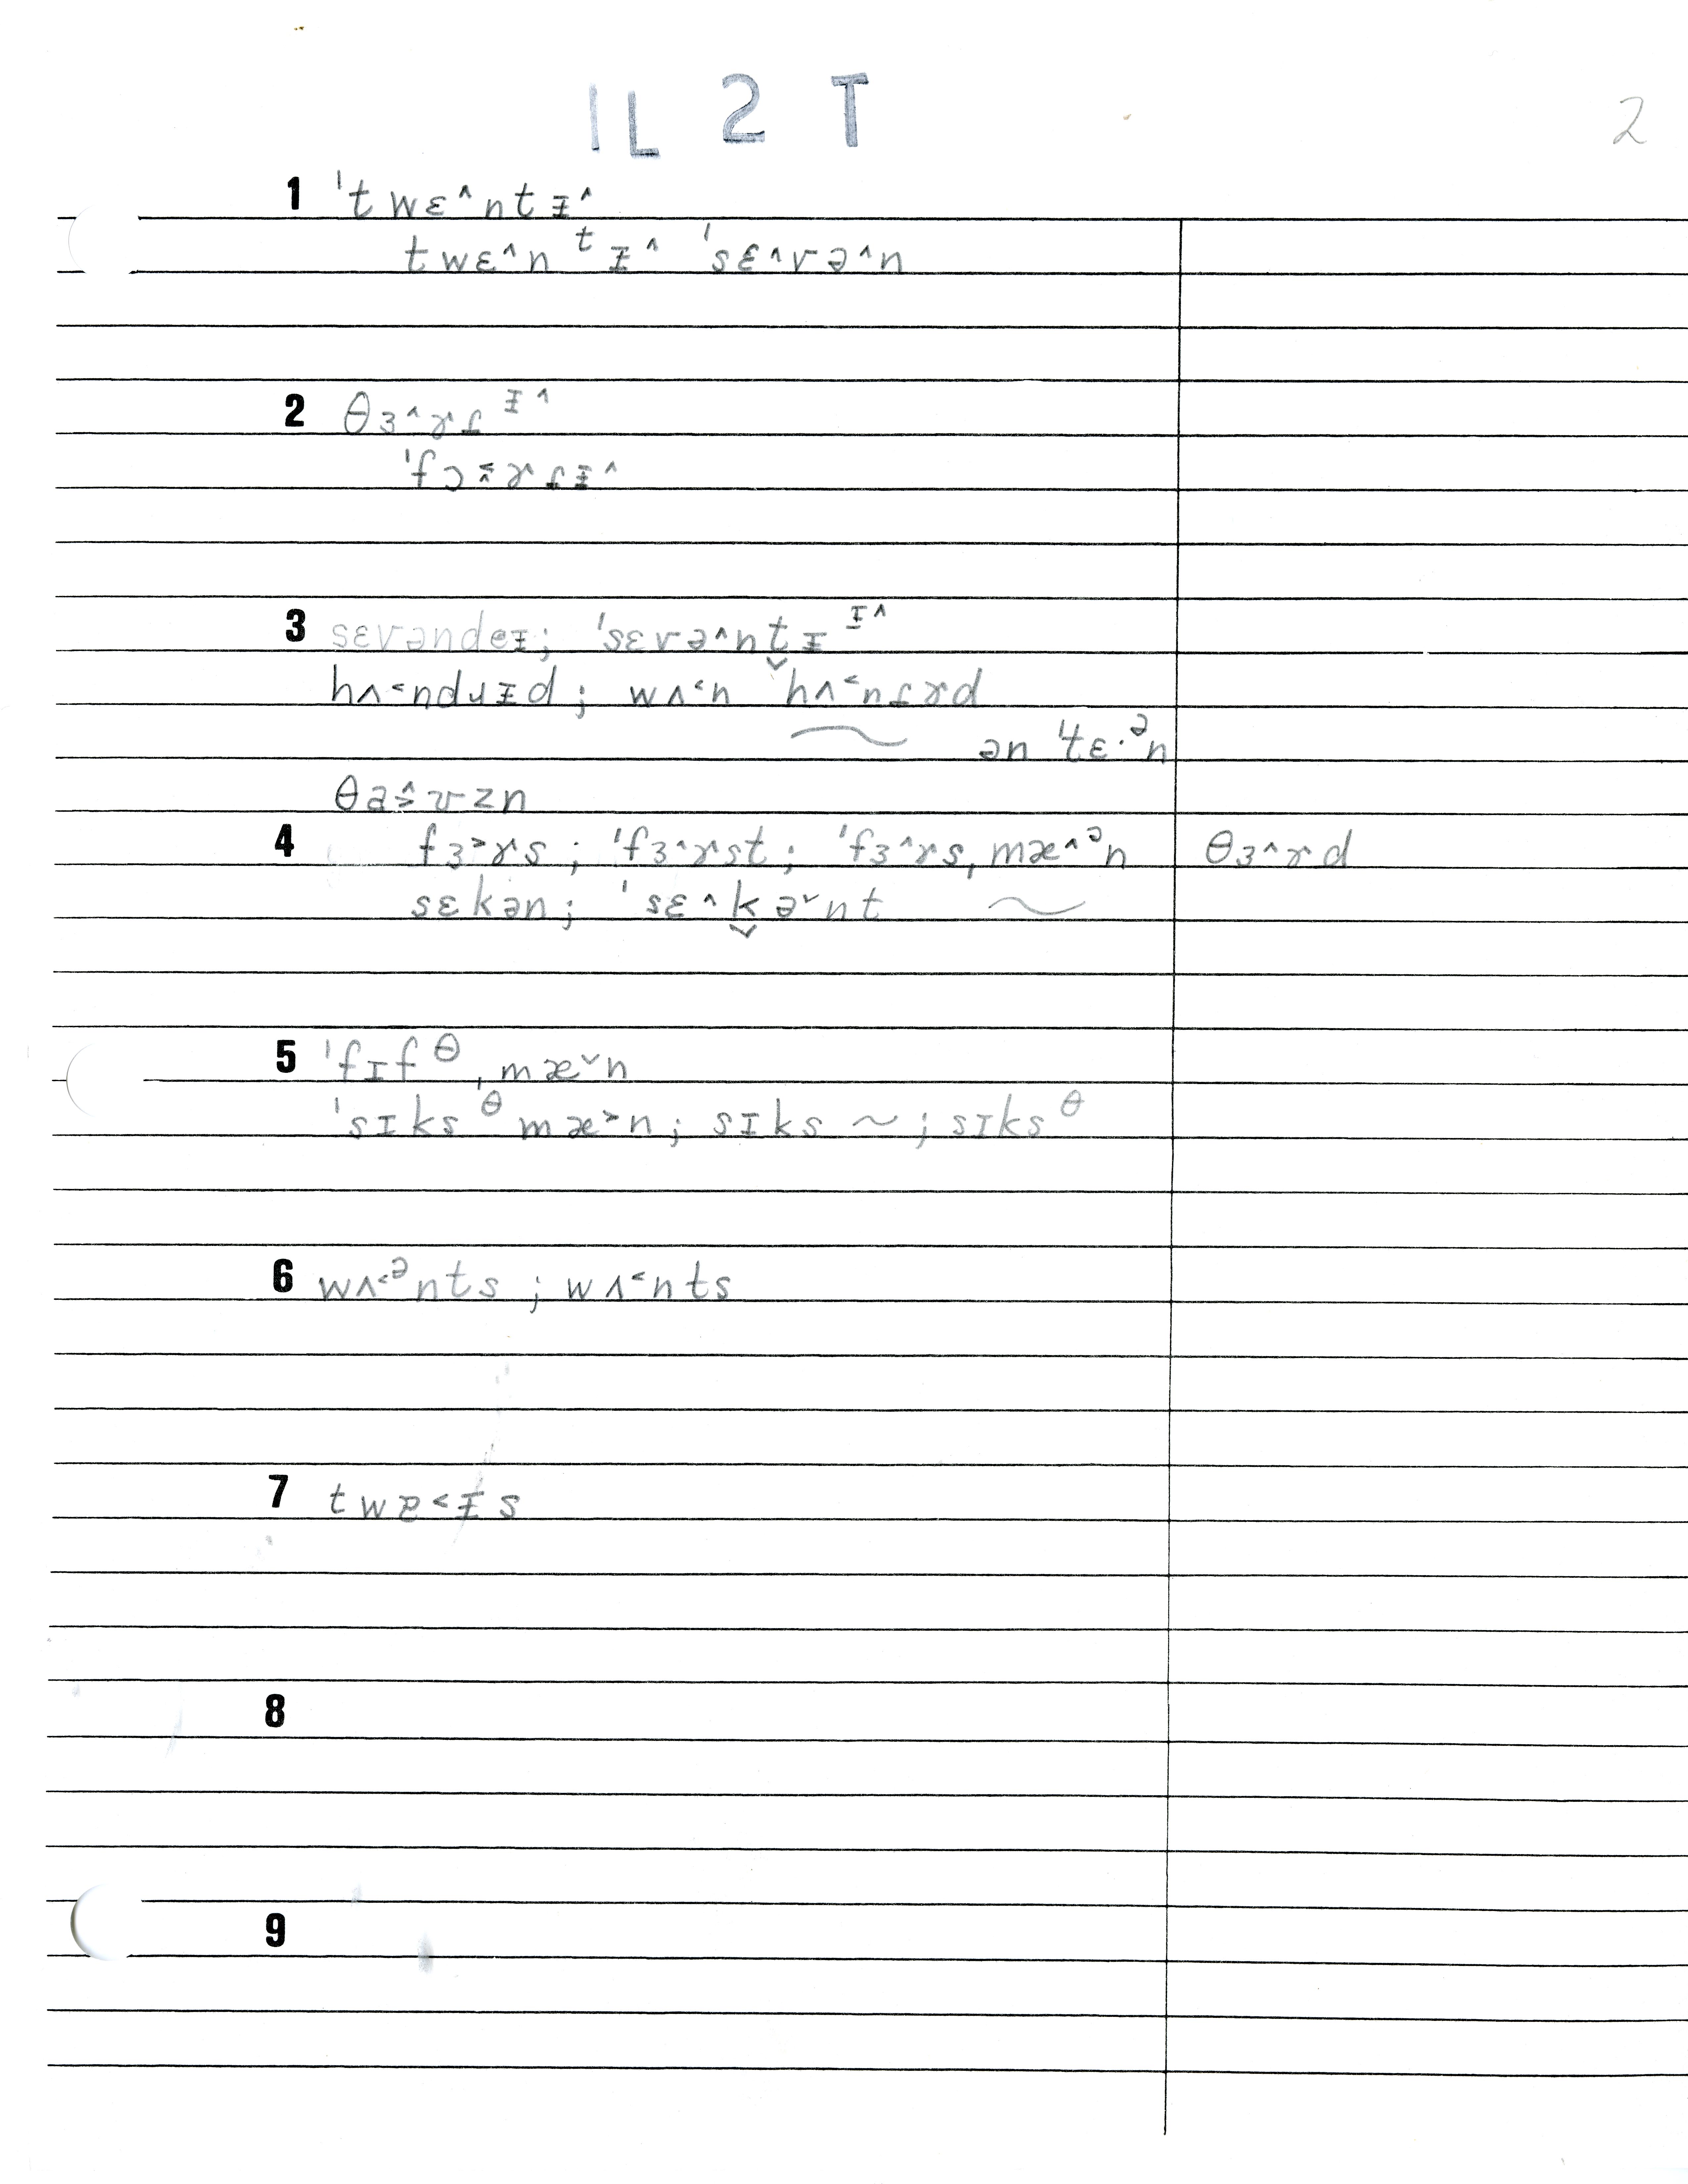 IL 2 T
2
1 ˈtwɛ^ntɪ̵^
twɛ^nᵗɪ̵^ ˈsɛ^və^n
2 θɜ^ɤɾᶦ̵^
ˈfɔ⪕ɤɾɪ̵^
3 sɛvəndɘɪ̵; ˈsɛvə^nt̬ɪᶦ̵^
hʌ<ndɹɪ̵d; wʌ<n hʌ<nɾɤd
~ ən ˈtɛ·ᵊn
θa⪕ʊzn
4 fɜ>ɤs; ˈfɜ^ɤst; ˈfɜ^ɤsˌmæ^ᵊn θɜ^ɤd
sɛkən; ˈsɛ^k̬ə˅nt ~
5 ˈfɪfᶿˌmæ˅n
ˈsɪksᶿmæ>n; sɪks ~; sɪksᶿ
6 wʌ<ᵊnts; wʌ<nts
7 twɐ<ɪ̵s
8
9